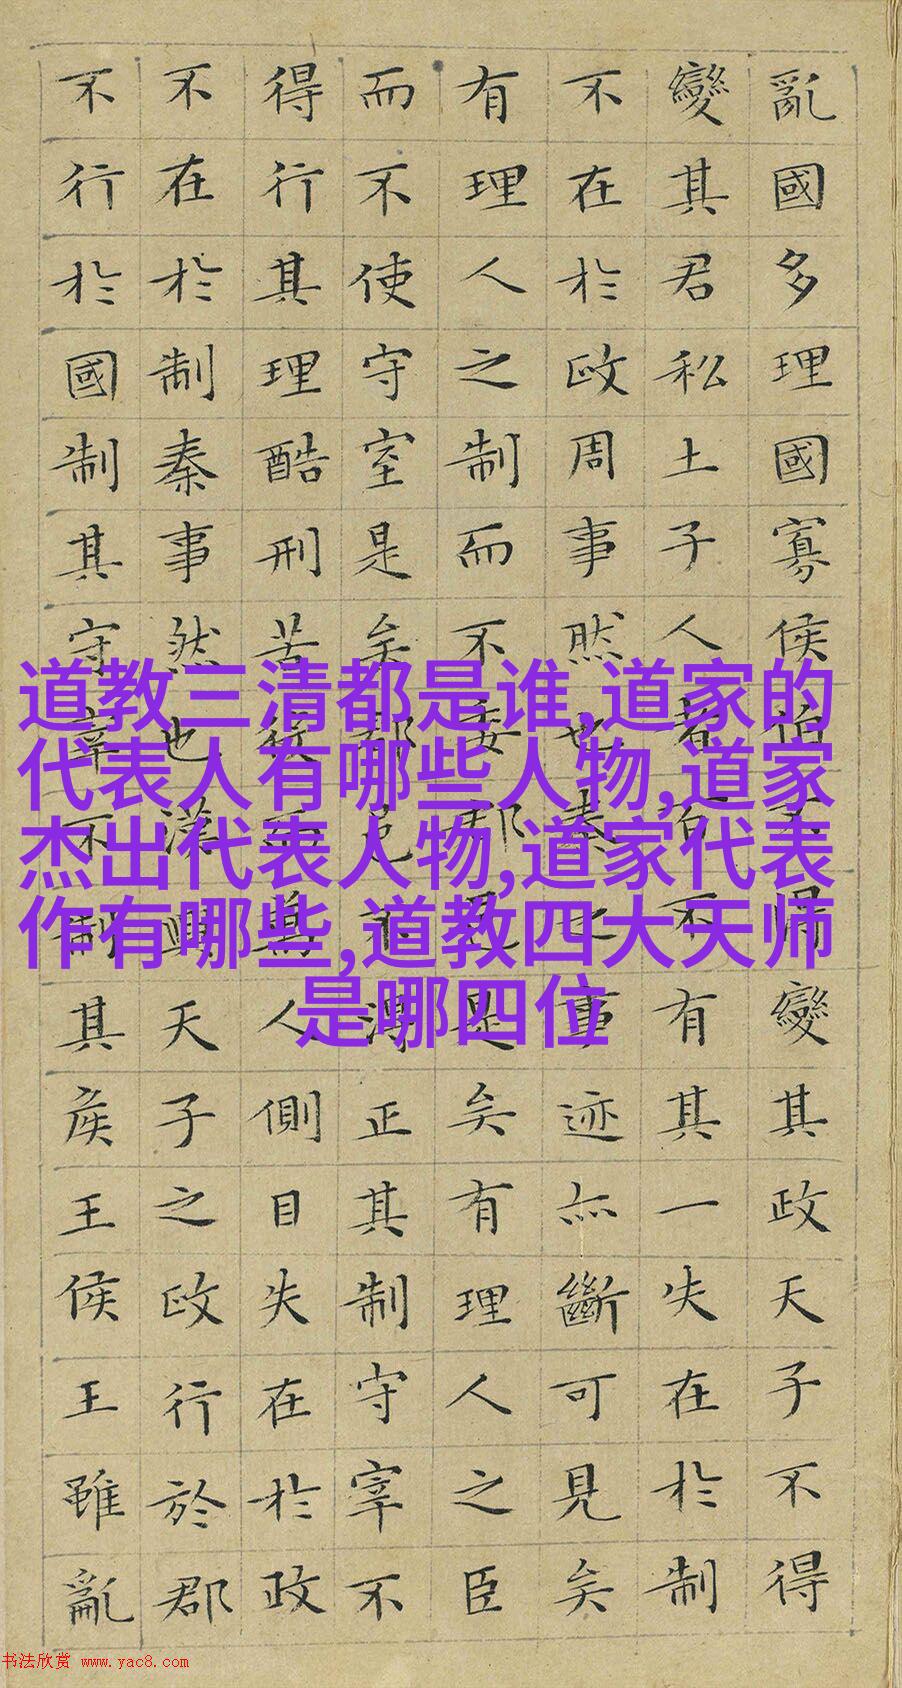 亂國多理國寡侯伯不得變其政天子不得
變其君私土子人者百不有其一失在於制
不在於政周事然也秦之事迹亦斷可見矣
有理人之制而不委郡邑是矣有理人之臣
而不使守宰是矣郡邑不得正其制守宰不
得行其理酷刑苦役而萬人側目失在於政
不在於制秦事然也漢興天子之政行於郡
不行於國制其守宰不制其侯王侯王雖亂
道教三清都是谁,道家的
代表人有哪些人物,道家
杰出代表人物,道家代表
作有哪些,道教四大天师
是哪四位
书法欣赏 www.yac8.com